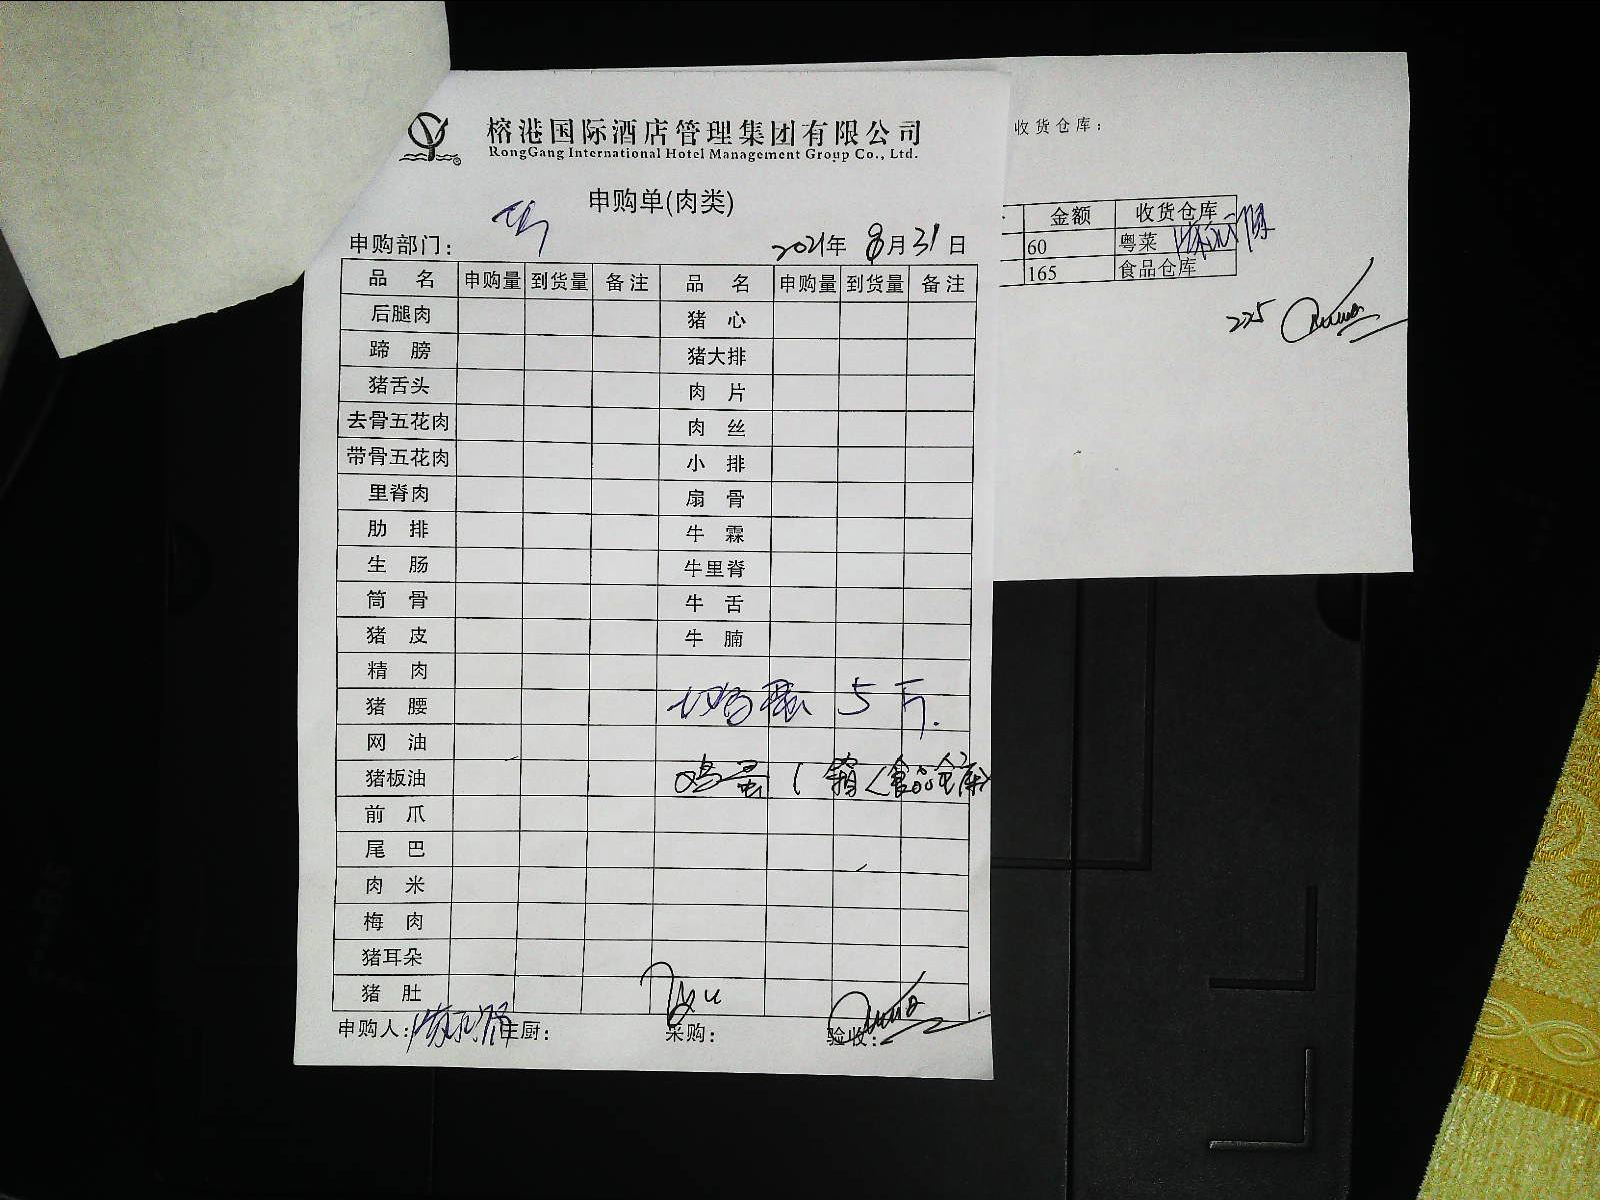 榕港国际酒店管理集团有限公司
RongGang International Hotel Management Group Co., Ltd.
申购单(肉类)
申购部门：
2021年 8月31日
品 名 申购量 到货量 备注 品 名 申购量 到货量 备注
后腿肉 猪 心
蹄 膀 猪大排
猪舌头 肉 片
去骨五花肉 肉 丝
带骨五花肉 小 排
里脊肉 扇 骨
肋 排 牛 霖
生 肠 牛里脊
筒 骨 牛 舌
猪 皮 牛 腩
精 肉
猪 腰 5斤.
网 油
猪板油 鸡蛋 1箱(食品仓库)
前 爪
尾 巴
肉 米
梅 肉
猪耳朵
猪 肚
申购人： 主厨： 采购： 验收：
收货仓库：
金额 收货仓库
60 粤菜
165 食品仓库
225